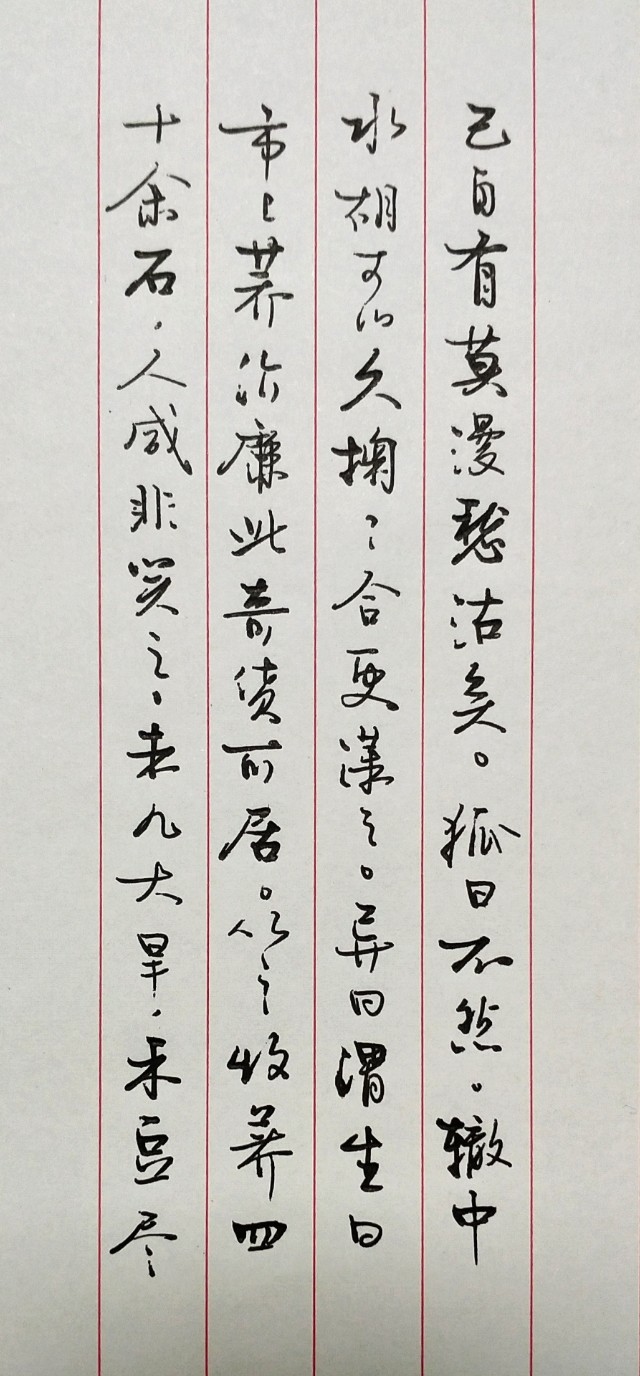 己自有莫漫愁沽矣。狐曰不然。辙中
水胡可以久掬々合更谋之。异日谓生曰
市上荞价廉此奇货可居。从之收荞四
十余石，人咸非笑之，未几大旱，禾豆尽